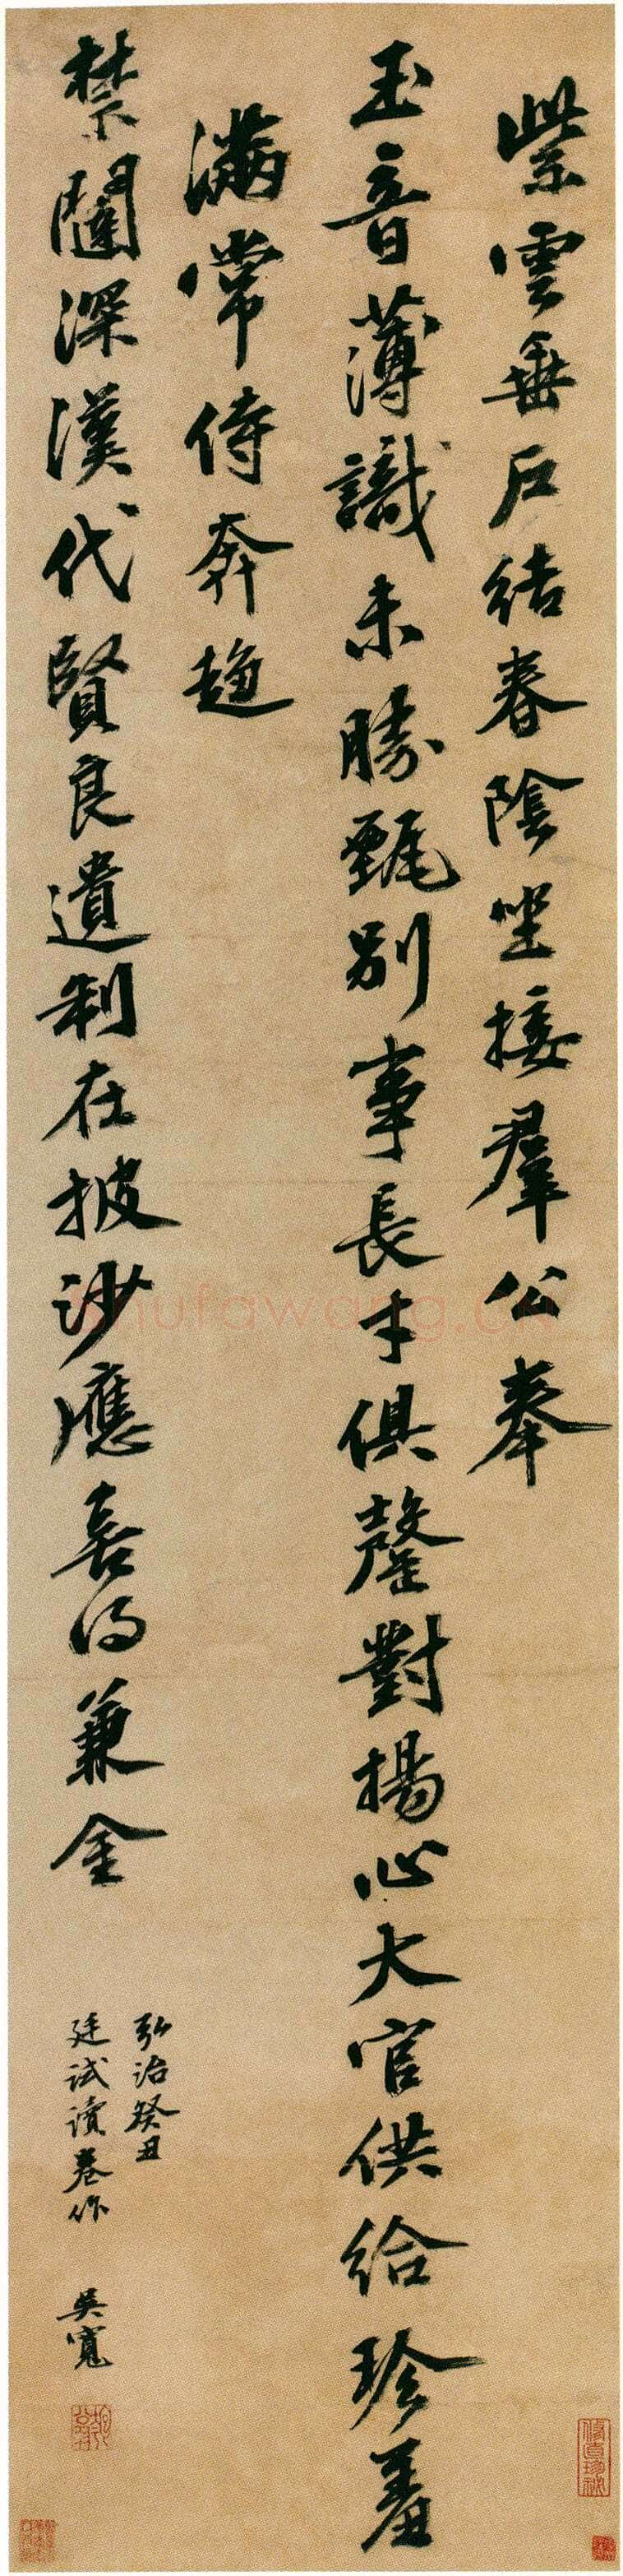 紫雲垂戶結春陰坐接羣公奉
玉音薄識未勝甄別事長才俱罄對揚心大官供給珍羞
滿常侍奔趨
禁闥深漢代賢良遺制在披沙應喜得兼金
弘治癸丑
廷試讀卷作
吳寬
shufawang.cn